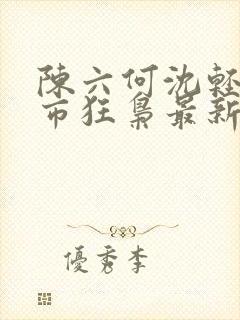 陳六何沈輕
市狂梟最新
優秀李